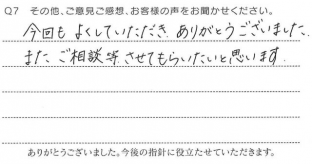 Q7 その他、ご意見ご感想、お客様の声をお聞かせください。
今回も よくしていただき ありがとうございました。
また ご相談等 させてもらいたいと思います。
ありがとうございました。今後の指針に役立たせていただきます。